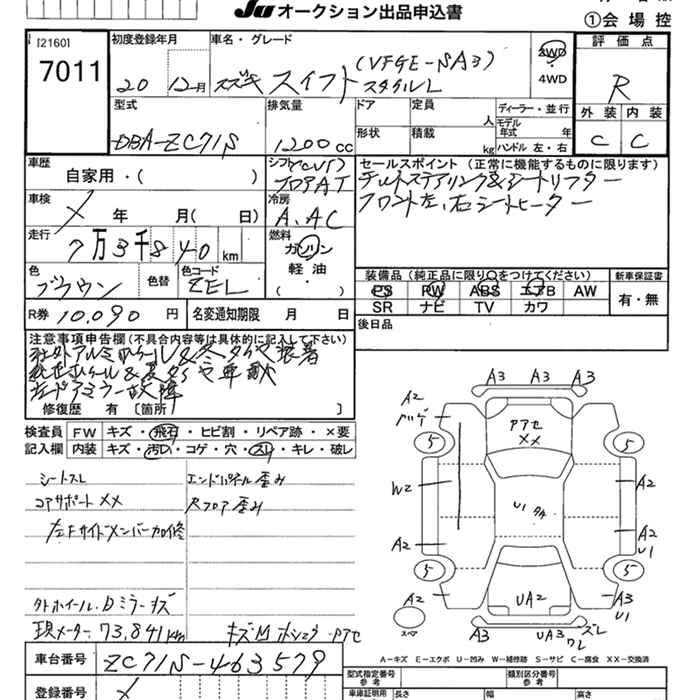 JU オークション出品申込書
①会場控
[2160]
7011
初度登録年月
20 12月
車名・グレード
スズキ スイフト
(VFGE-SA3)
スタイルL
2WD
4WD
評価点
R
外装 内装
C C
型式
DBA-ZC71S
排気量
1200cc
ドア
定員
人
形状
積載
kg
ディーラー・並行
モデル年式 年
ハンドル 左・右
車歴
自家用・( )
シフト(CVT)
フロアAT
セールスポイント (正常に機能するものに限ります)
チルトステアリング&シートリフター
フロント左、右シートヒーター
車検
年 月( 日)
冷房
A.AC
走行
7万3千840km
燃料
ガソリン
軽油
( )
色
ブラウン
色替
色コード
ZEL
装備品 (純正品に限り○をつけてください)
PS PW ABS エアB AW
SR ナビ TV カワ
新車保証書
有・無
R券 10,090円
名変通知期限 月 日
後日品
注意事項申告欄(不具合内容等は具体的に記入して下さい)
社外アルミホイール&冬タイヤ装着
左ドアミラー故障
修復歴 有 [箇所 ]
検査員記入欄
FW キズ・飛石・ヒビ割・リペア跡・×要
内装 キズ・汚レ・コゲ・穴・スレ・キレ・破レ
シートスレ
エンドパネル歪み
コアサポート××
Rフロア歪み
左Fサイドメンバー加修
外ホイール.Dミラーキズ
現メーター 73,841km
車台番号 ZC71S-463579
登録番号
A3 A3 A3
A2
アアセ
××
5 5
W2
A2
U1
A2
A2
U1
5 5
UA2
A2
A3
U1
スペア
A3
UA3
ズレ
ワレ
A-キズ E-エクボ U-凹み W-補修跡 S-サビ C-腐食 XX-交換済
型式指定番号
参考
類別区分番号
参考
車庫証明用
長さ
幅
高さ